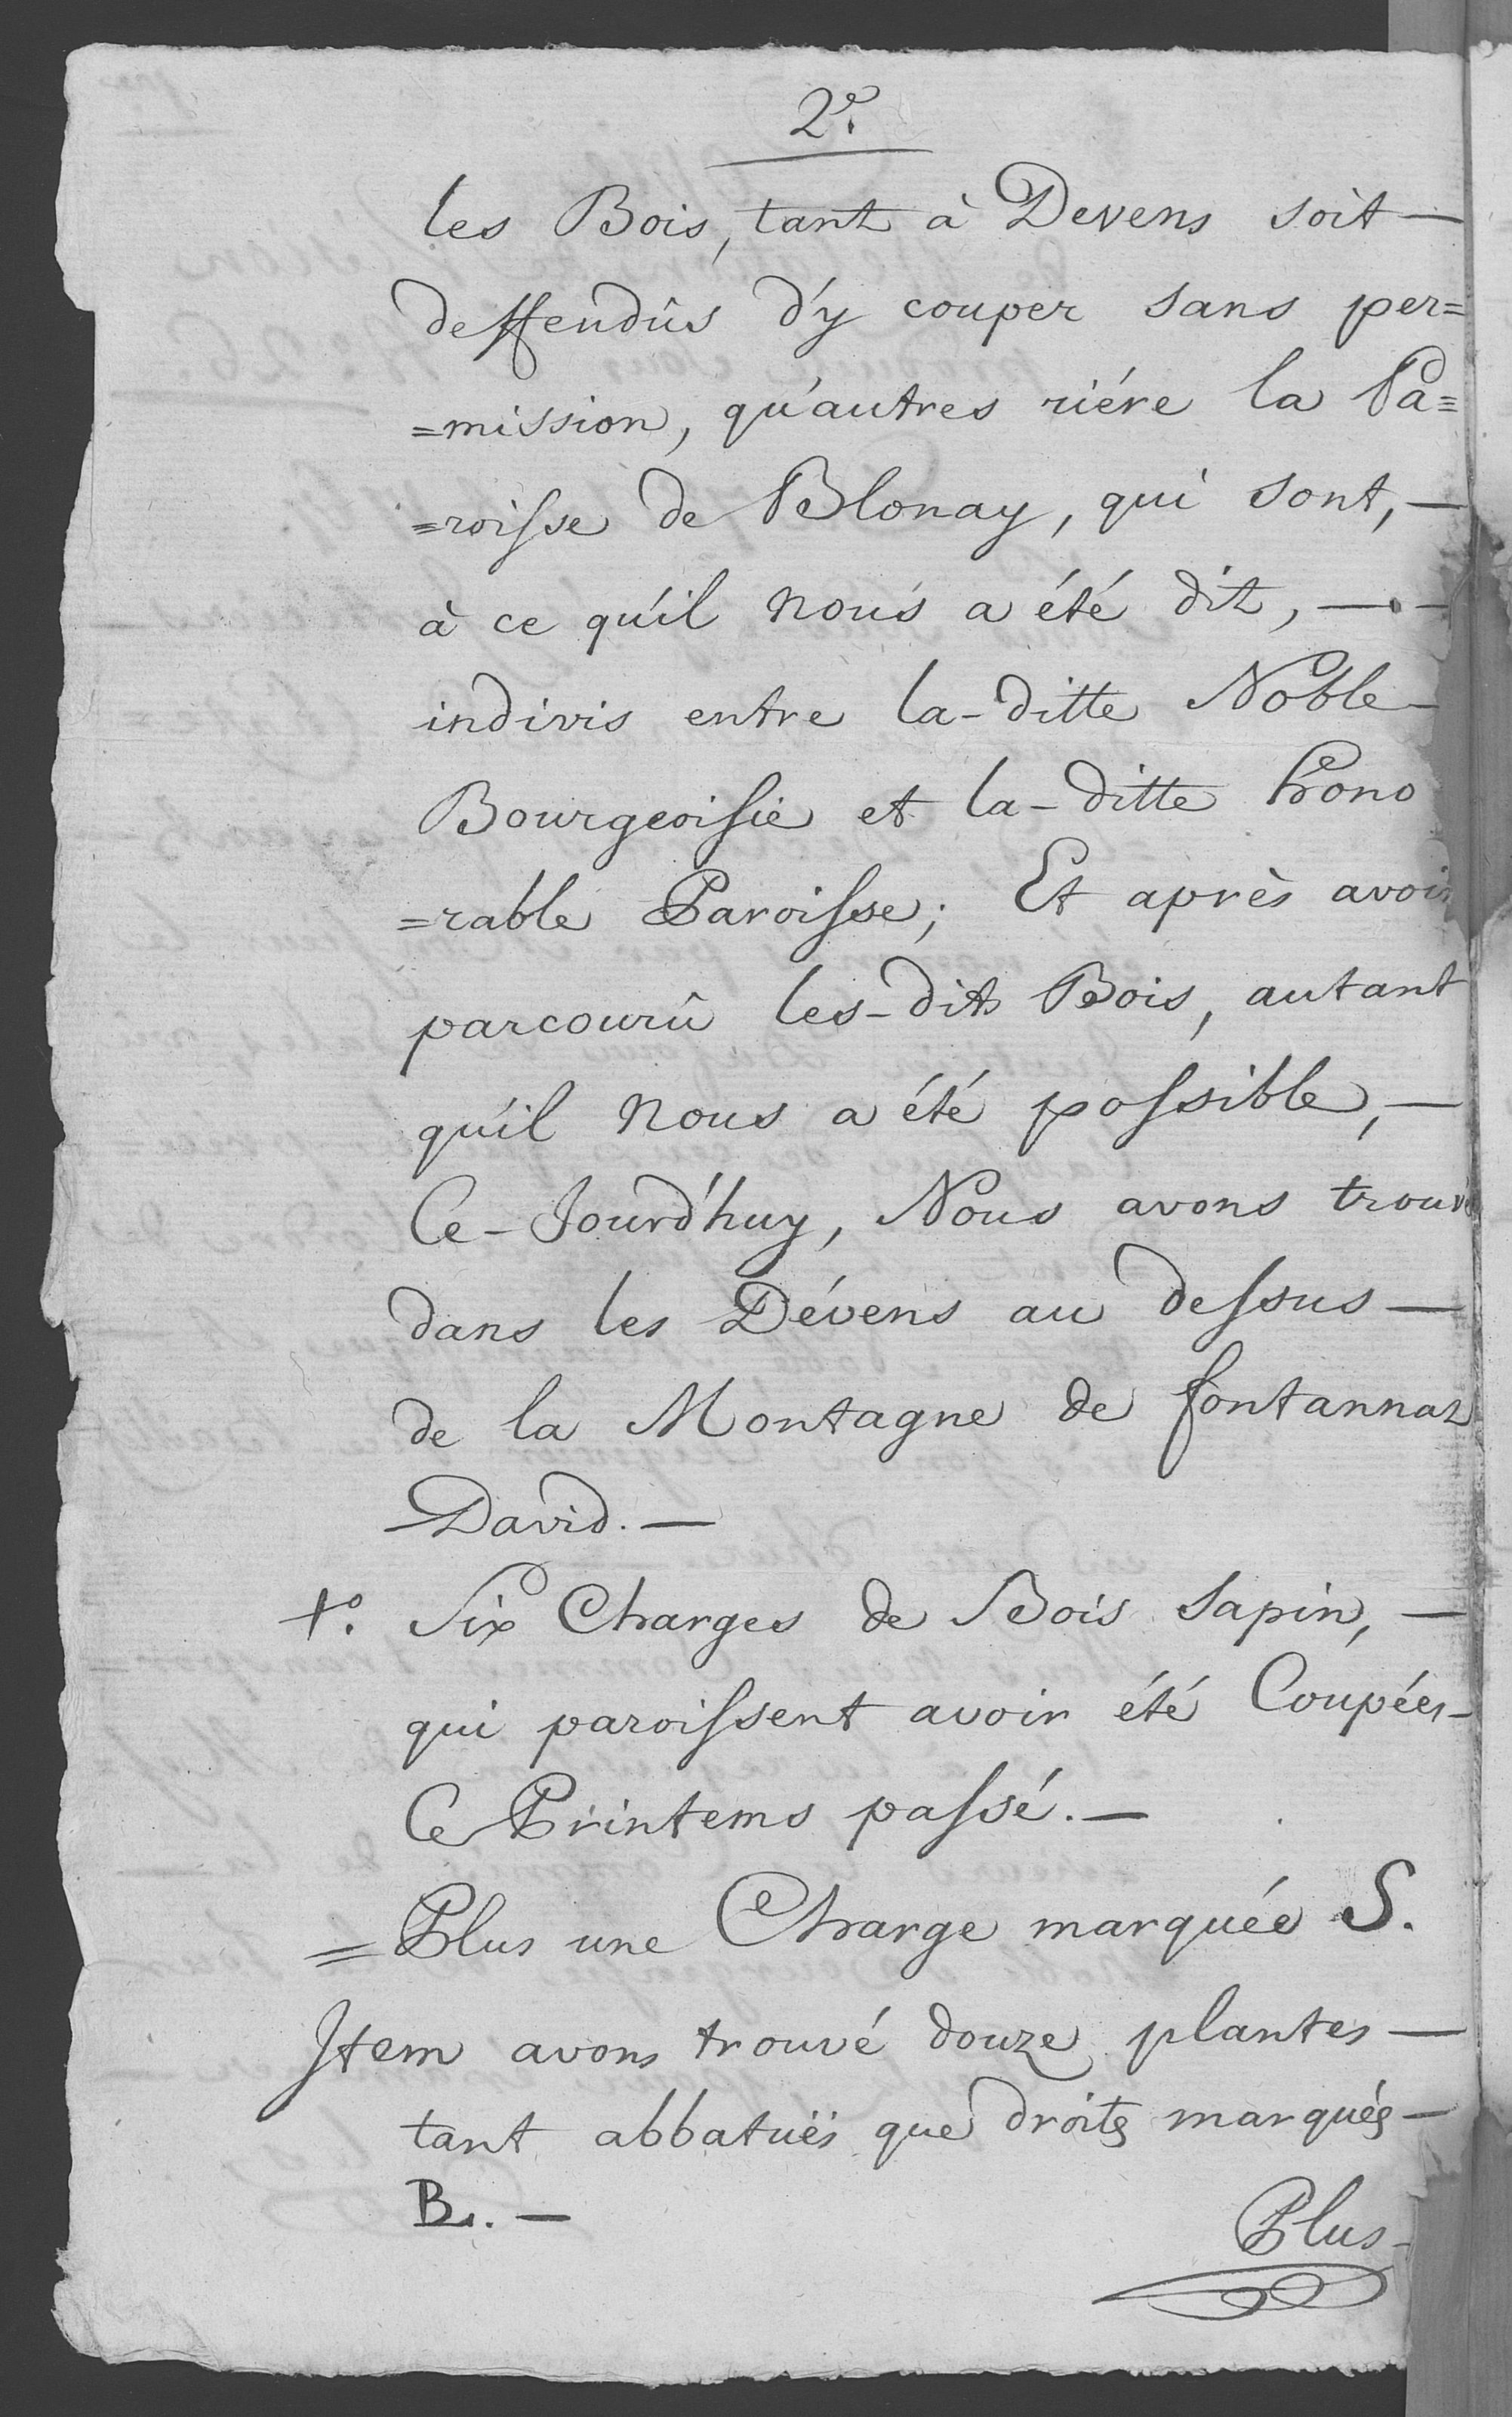 2e.
les Bois, tant à Devens soit —
deffendûs d'y couper sans per=
=mission, qu'autres riére la Pa=
=roisse de Blonay, qui sont, —
à ce qu'il nous a été dit, — —
indivis entre la-ditte Noble —
Bourgeoisie et la-ditte hono
=rable Paroisse; Et après avoir
parcourû les-dits Bois, autant
qu'il nous a été possible, —
Ce-Jourd'huy, Nous avons trouvé
dans les Dévens au dessus —
de la Montagne de fontannaz
David. —
1o. Six Charges de Bois sapin, —
qui paroissent avoir été Coupées —
Ce Printems passé. —
= Plus une Charge marquée S.
Item avons trouvé douze plantes —
tant abbatuës que droites marquées —
B. —
Plus —